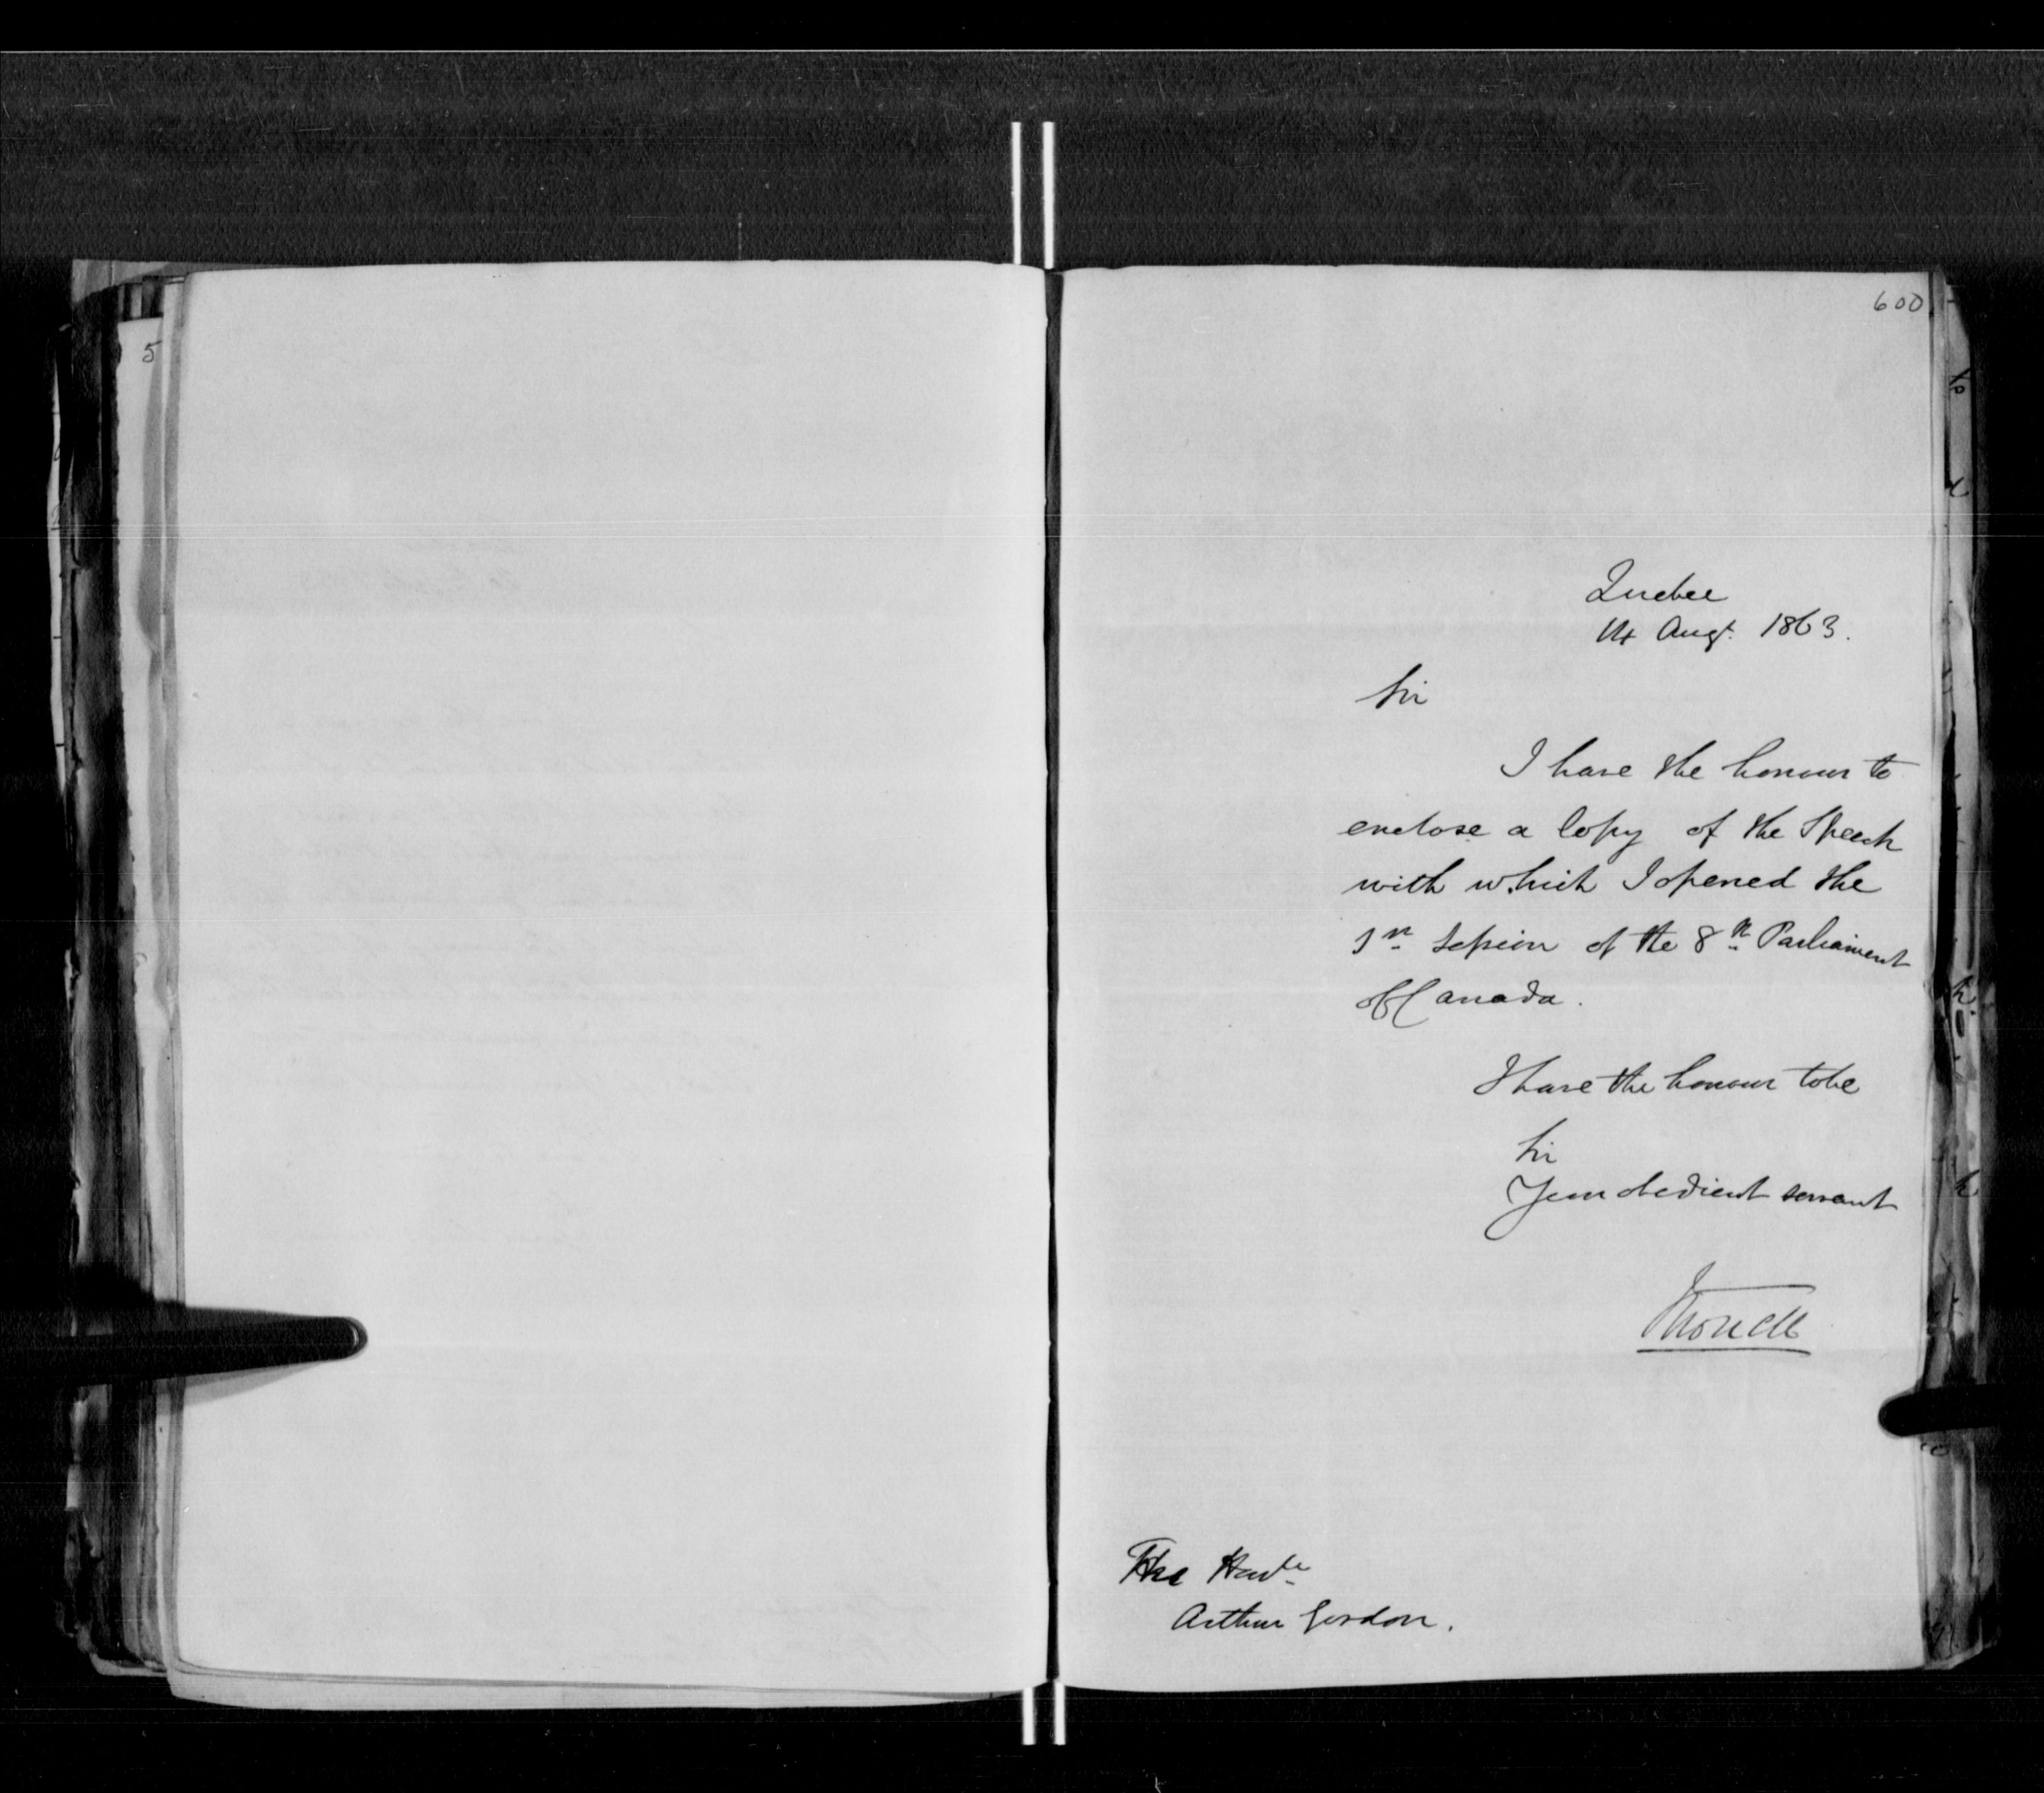 600
5
Quebec
14 Augt. 1863.
Sir
I have the honour to
enclose a Copy of the Speech
with which I opened the
1st Session of the 8th Parliament
of Canada.
I have the honour to be
Sir
Your obedient servant
Monck
The Honble
Arthur Gordon.